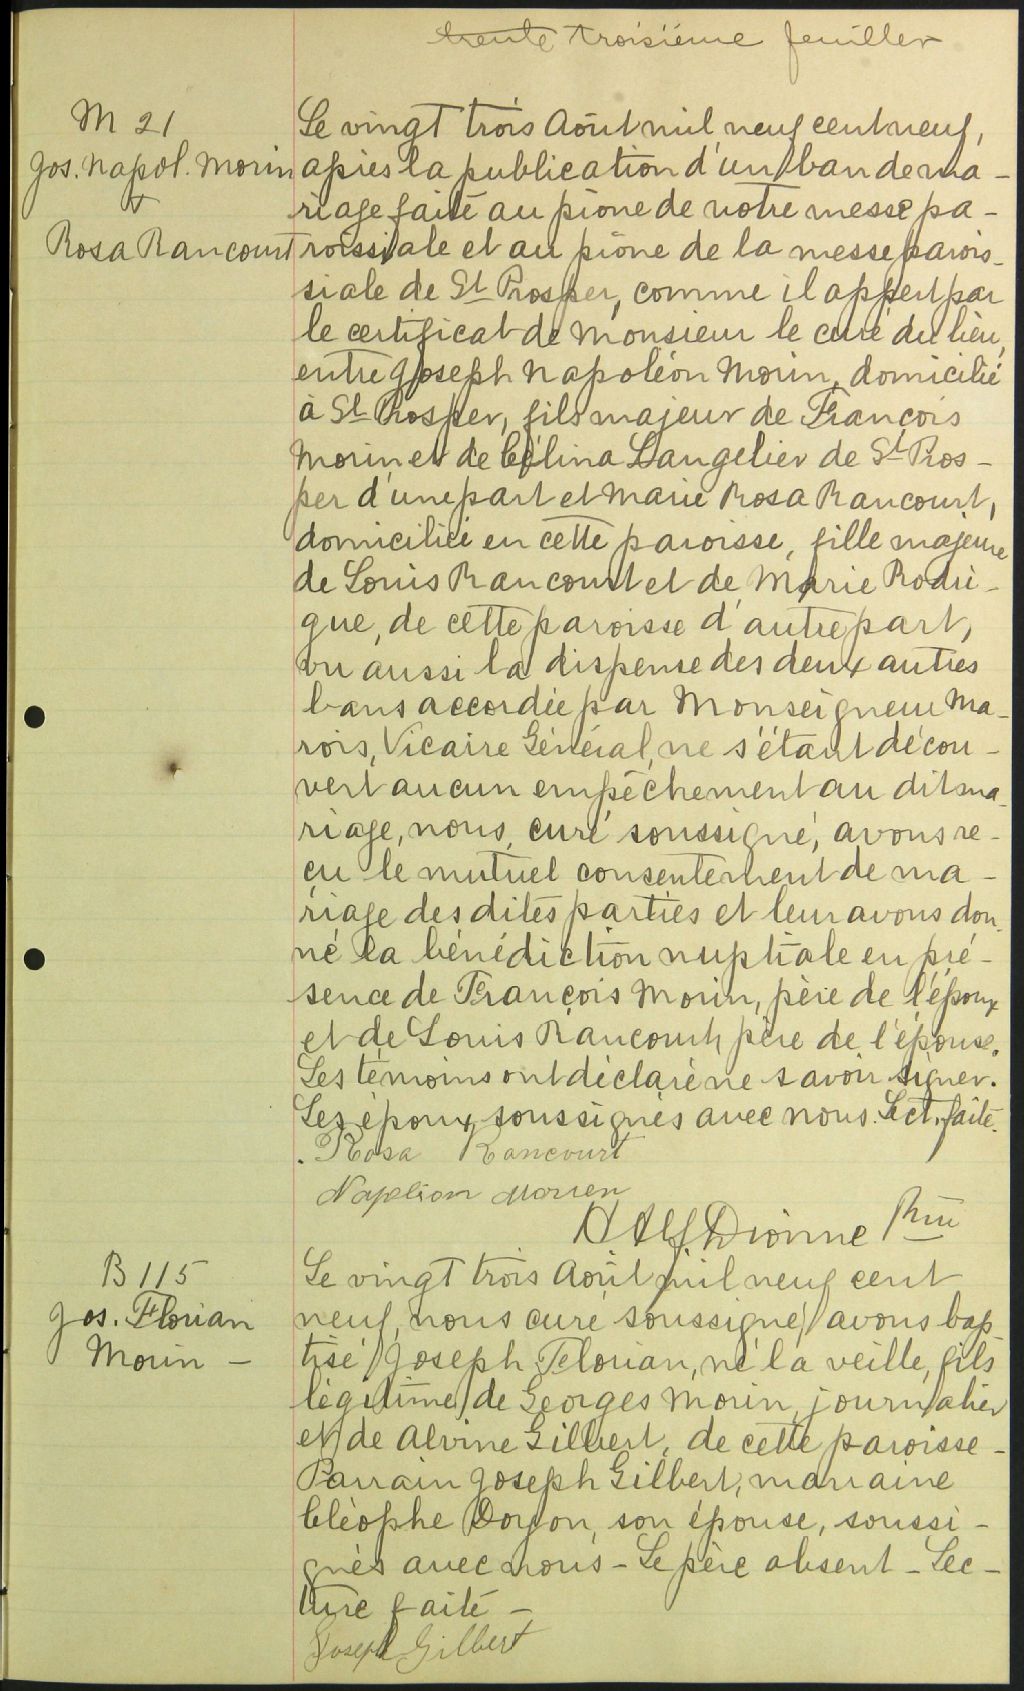 trente troisième feuillet
M 21
Jos. Napol. Morin
&
Rosa Rancourt
Le vingt trois Août mil neuf cent neuf,
après la publication d'un ban de ma-
riage faite au prône de notre messe pa-
roissiale et au prône de la messe parois-
siale de St Prosper, comme il appert par
le certificat de Monsieur le curé du lieu,
entre Joseph Napoléon Morin, domicilié
à St Prosper, fils majeur de François
Morin et de Célina Langelier de St Pros-
per d'une part et Marie Rosa Rancourt,
domiciliée en cette paroisse, fille majeure
de Louis Rancourt et de Marie Rodri-
gue, de cette paroisse d'autre part,
vu aussi la dispense des deux autres
bans accordée par Monseigneur Ma-
rois, Vicaire Général, ne s'étant décou-
vert aucun empêchement au dit ma-
riage, nous, curé soussigné, avons re-
çu le mutuel consentement de ma-
riage des dites parties et leur avons don-
né la bénédiction nuptiale en pré-
sence de François Morin, père de l'époux
et de Louis Rancourt, père de l'épouse.
Les témoins ont déclaré ne savoir signer.
Les époux soussignés avec nous. Lect. faite.
Rosa Rancourt
Naplion Morien
Alf Dionne Ptre
B 115
Jos. Florian
Morin -
Le vingt trois Août mil neuf cent
neuf, nous curé soussigné, avons bap-
tisé Joseph Florian, né la veille, fils
légitime de Georges Morin, journalier
et de Alvine Gilbert, de cette paroisse -
Parrain Joseph Gilbert, marraine
Cléophe Doyon, son épouse, soussi-
gnés avec nous - Le père absent - Lec-
ture faite -
Joseph Gilbert